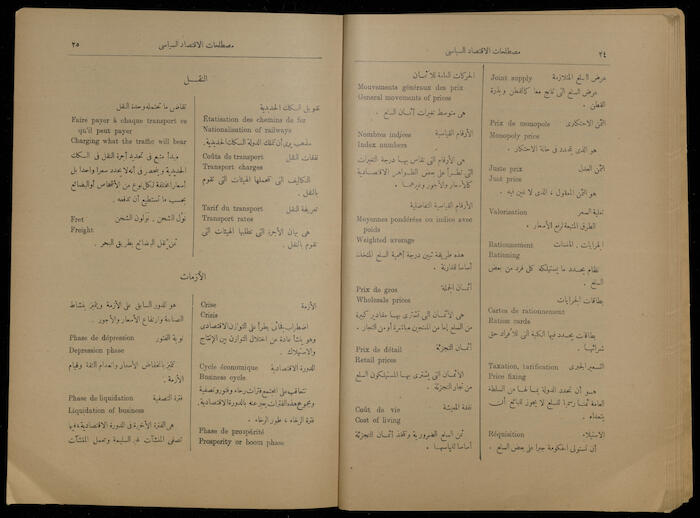 ٢٤
مصطلحات الاقتصاد السياسى
Joint supply عرض السلع المتلازمة
عرض السلع التى تنتج معا كالقطن وبذرة
القطن .
Prix de monopole الثمن الاحتكارى
Monopoly price
هو الذى يتحدد فى حالة الاحتكار .
Juste prix الثمن العدل
Just price
هو الثمن المعقول ، الذى لا غبن فيه .
Valorisation تعلية السعر
الطرق المتبعة لرفع الأسعار .
Rationnement الجرايات .
Rationing
نظام يحدد ما يستهلكه كل فرد من بعض
السلع .
بطاقات الجرايات
Cartes de rationnement
Ration cards
بطاقات يحدد فيها الكمية التى للأفراد حق
شرائها .
Taxation, tarification التسعير الجبرى
Price fixing
هو أن تحدد الدولة بما لها من السلطة
العامة ثمنا رسميا للسلع لا يجوز للبائع أن
يتعداه .
Réquisition الاستيلاء
أن تستولى الحكومة جبرا على بعض السلع .
الحركات العامة للأثمان
Mouvements généraux des prix
General movements of prices
هى متوسط تغيرات أثمان السلع .
Nombres indices الأرقام القياسية
Index numbers
هى الأرقام التى تقاس بها درجة التغيرات
التى تطرأ على بعض الظواهر الاقتصادية
كالأسعار والأجور وغيرها .
الأرقام القياسية التفاضلية
Moyennes pondérées ou indices avec
poids
Weighted average
هذه طريقة تبين درجة أهمية السلع المتخذة
أساسا للمقارنة .
Prix de gros أثمان الجملة
Wholesale prices
هى الأثمان التى تشترى بها مقادير كبيرة
من السلع إما من المنتجين مباشرة أو من التجار .
Prix de détail أثمان التجزئة
Retail prices
الأثمان التى يشترى بها المستهلكون السلع
من تجار التجزئة .
Coût de vie نفقة المعيشة
Cost of living
ثمن السلع الضرورية وتتخذ أثمان التجزئة
أساسا لقياسها .
مصطلحات الاقتصاد السياسى
٢٥
النقل
تمويل السكك الحديدية
Étatisation des chemins de fer
Nationalisation of railways
مذهب يرى أن تملك الدولة السكك الحديدية .
Coûts de transport نفقات النقل
Transport charges
التكاليف التى تتحملها الهيئات التى تقوم
بالنقل .
Tarif du transport تعريفة النقل
Transport rates
هى بيان الأجرة التى تطلبها الهيئات التى
تقوم بالنقل .
تقاضى ما تحتمله وحدة النقل
Faire payer à chaque transport ce
qu'il peut payer
Charging what the traffic will bear
مبدأ متبع فى تحديد أجرة النقل فى السكك
الحديدية وينحصر فى أنه لا يحدد سعر واحد بل
أسعار مختلفة لكل نوع من الأشخاص أو البضائع
بحسب ما تستطيع أن تدفعه .
Fret نول الشحن . نولون الشحن
Freight
ثمن نقل البضائع بطريق البحر .
الأزمات
Crise الأزمة
Crisis
اضطراب فجائى يطرأ على التوازن الاقتصادى
وهو ينشأ عادة من اختلال التوازن بين الإنتاج
والاستهلاك .
Cycle économique الدورة الاقتصادية
Business cycle
تتعاقب على المجتمع فترات رخاء وفتور وتصفية
ومجموع هذه الفترات يعبر عنه بالدورة الاقتصادية .
فترة الرخاء ، طور الرخاء .
Phase de prospérité
Prosperity or boom phase
هو الدور السابق على الأزمة ويتميز بنشاط
الصناعة وارتفاع الأسعار والأجور .
Phase de dépression نوبة الفتور
Depression phase
تمتاز بانخفاض الأسعار وانعدام الثقة وقيام
الأزمة .
Phase de liquidation فترة التصفية
Liquidation of business
هى الفترة الأخيرة فى الدورة الاقتصادية ، فيها
تصفى المنشآت غير السليمة وتعمل المنشآت